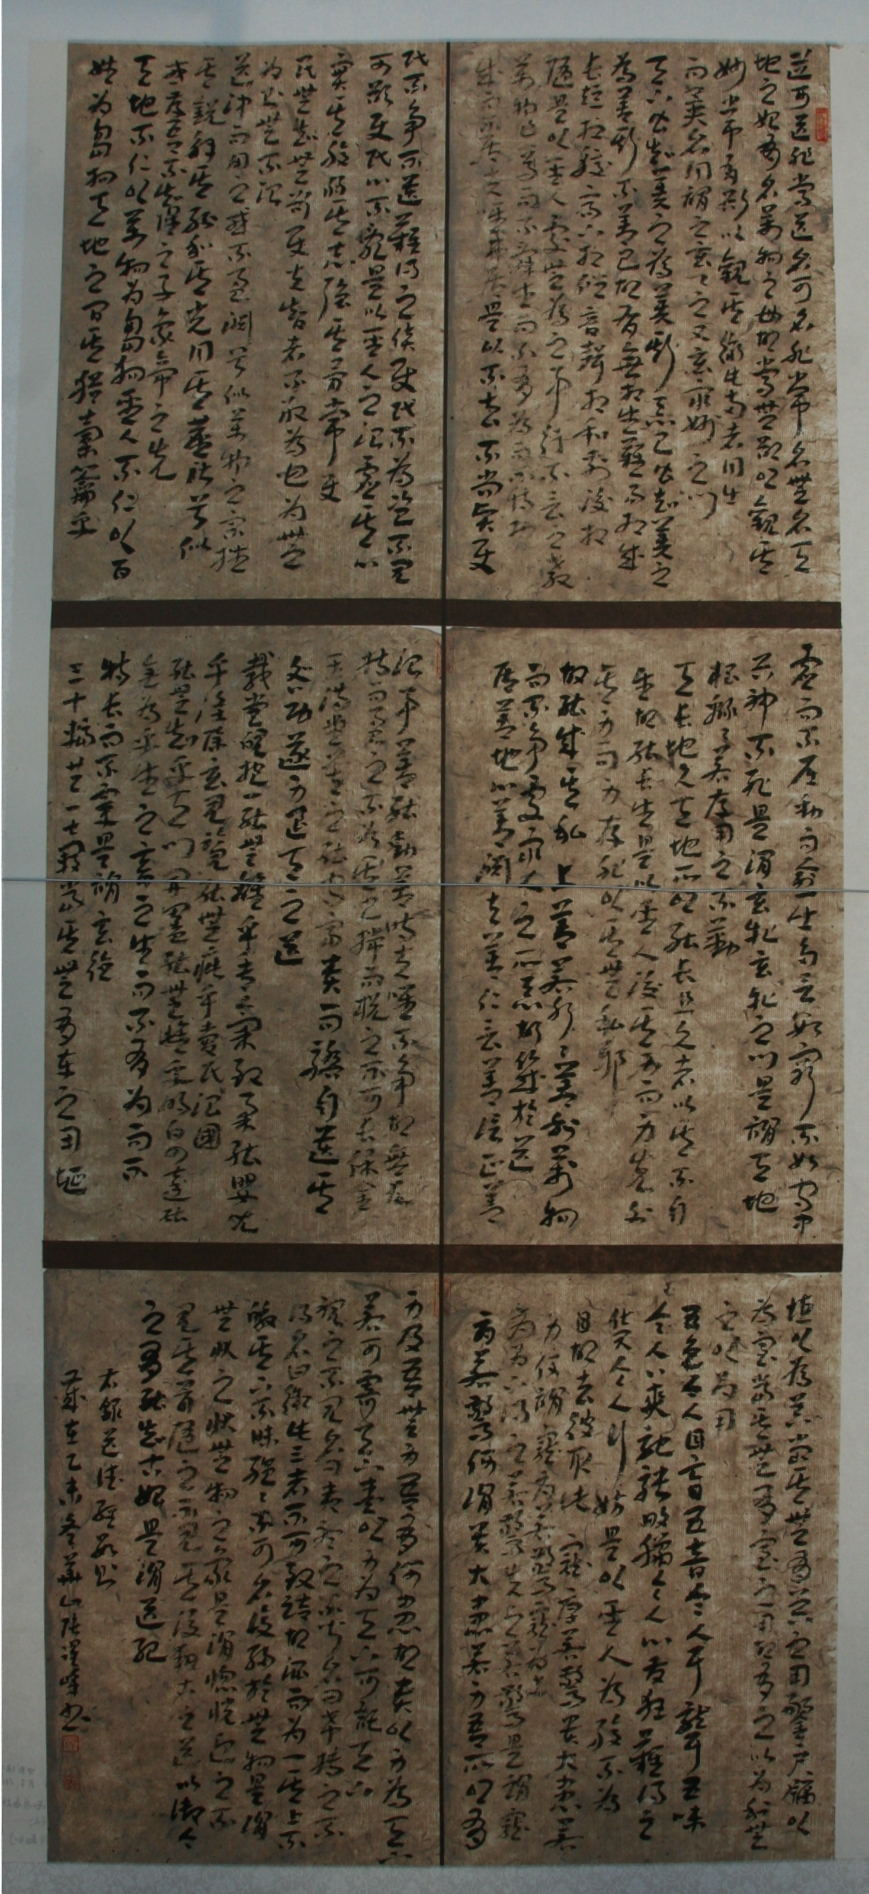 道可道非常道名可名非常名無名天
地之始有名萬物之母故常無欲以觀其
妙常有欲以觀其徼此兩者同出
而異名同謂之玄玄之又玄眾妙之門
天下皆知美之為美斯惡已皆知善之
為善斯不善已故有無相生難易相成
長短相較高下相傾音聲相和前後相
隨是以聖人處無為之事行不言之教
萬物作焉而不辭生而不有為而不恃功
成而弗居夫唯弗居是以不去不尚賢使
民不爭不貴難得之貨使民不為盜不見
可欲使民心不亂是以聖人之治虛其心
實其腹弱其志強其骨常使
民無知無欲使夫智者不敢為也為無
為則無不治
道沖而用之或不盈淵兮似萬物之宗挫
其銳解其紛和其光同其塵湛兮似
或存吾不知誰之子象帝之先
天地不仁以萬物為芻狗聖人不仁以百
姓為芻狗天地之間其猶橐籥乎
虛而不屈動而愈出多言數窮不如守中
谷神不死是謂玄牝玄牝之門是謂天地
根綿綿若存用之不勤
天長地久天地所以能長且久者以其不自
生故能長生是以聖人後其身而身先外
其身而身存非以其無私耶
故能成其私 上善若水水善利萬物
而不爭處眾人之所惡故幾於道
居善地心善淵與善仁言善信正善
治事善能動善時夫唯不爭故無尤
持而盈之不如其已揣而梲之不可長保金
玉滿堂莫之能守富貴而驕自遺其
咎功遂身退天之道
載營魄抱一能無離乎專氣致柔能嬰兒
乎滌除玄覽能無疵乎愛民治國
能無知乎天門開闔能無雌乎明白四達能
無為乎生之畜之生而不有為而不
恃長而不宰是謂玄德
三十輻共一轂當其無有車之用埏
埴以為器當其無有器之用鑿戶牖以
為室當其無有室之用故有之以為利無
之以為用
五色令人目盲五音令人耳聾五味
令人口爽馳騁畋獵令人心發狂難得之
貨令人行妨是以聖人為腹不為
目故去彼取此 寵辱若驚貴大患若
身何謂寵辱若驚寵為下
得之若驚失之若驚是謂寵
辱若驚何謂貴大患若身吾所以有
大患者為吾有身
及吾無身吾有何患故貴以身為天下
若可寄天下愛以身為天下若可託天下
視之不見名曰夷聽之不聞名曰希搏之不
得名曰微此三者不可致詰故混而為一其上不
皦其下不昧繩繩不可名復歸於無物是謂
無狀之狀無物之象是謂惚恍迎之不
見其首隨之不見其後執古之道以御今
之有能知古始是謂道紀
右錄道德經數則
歲在乙未冬